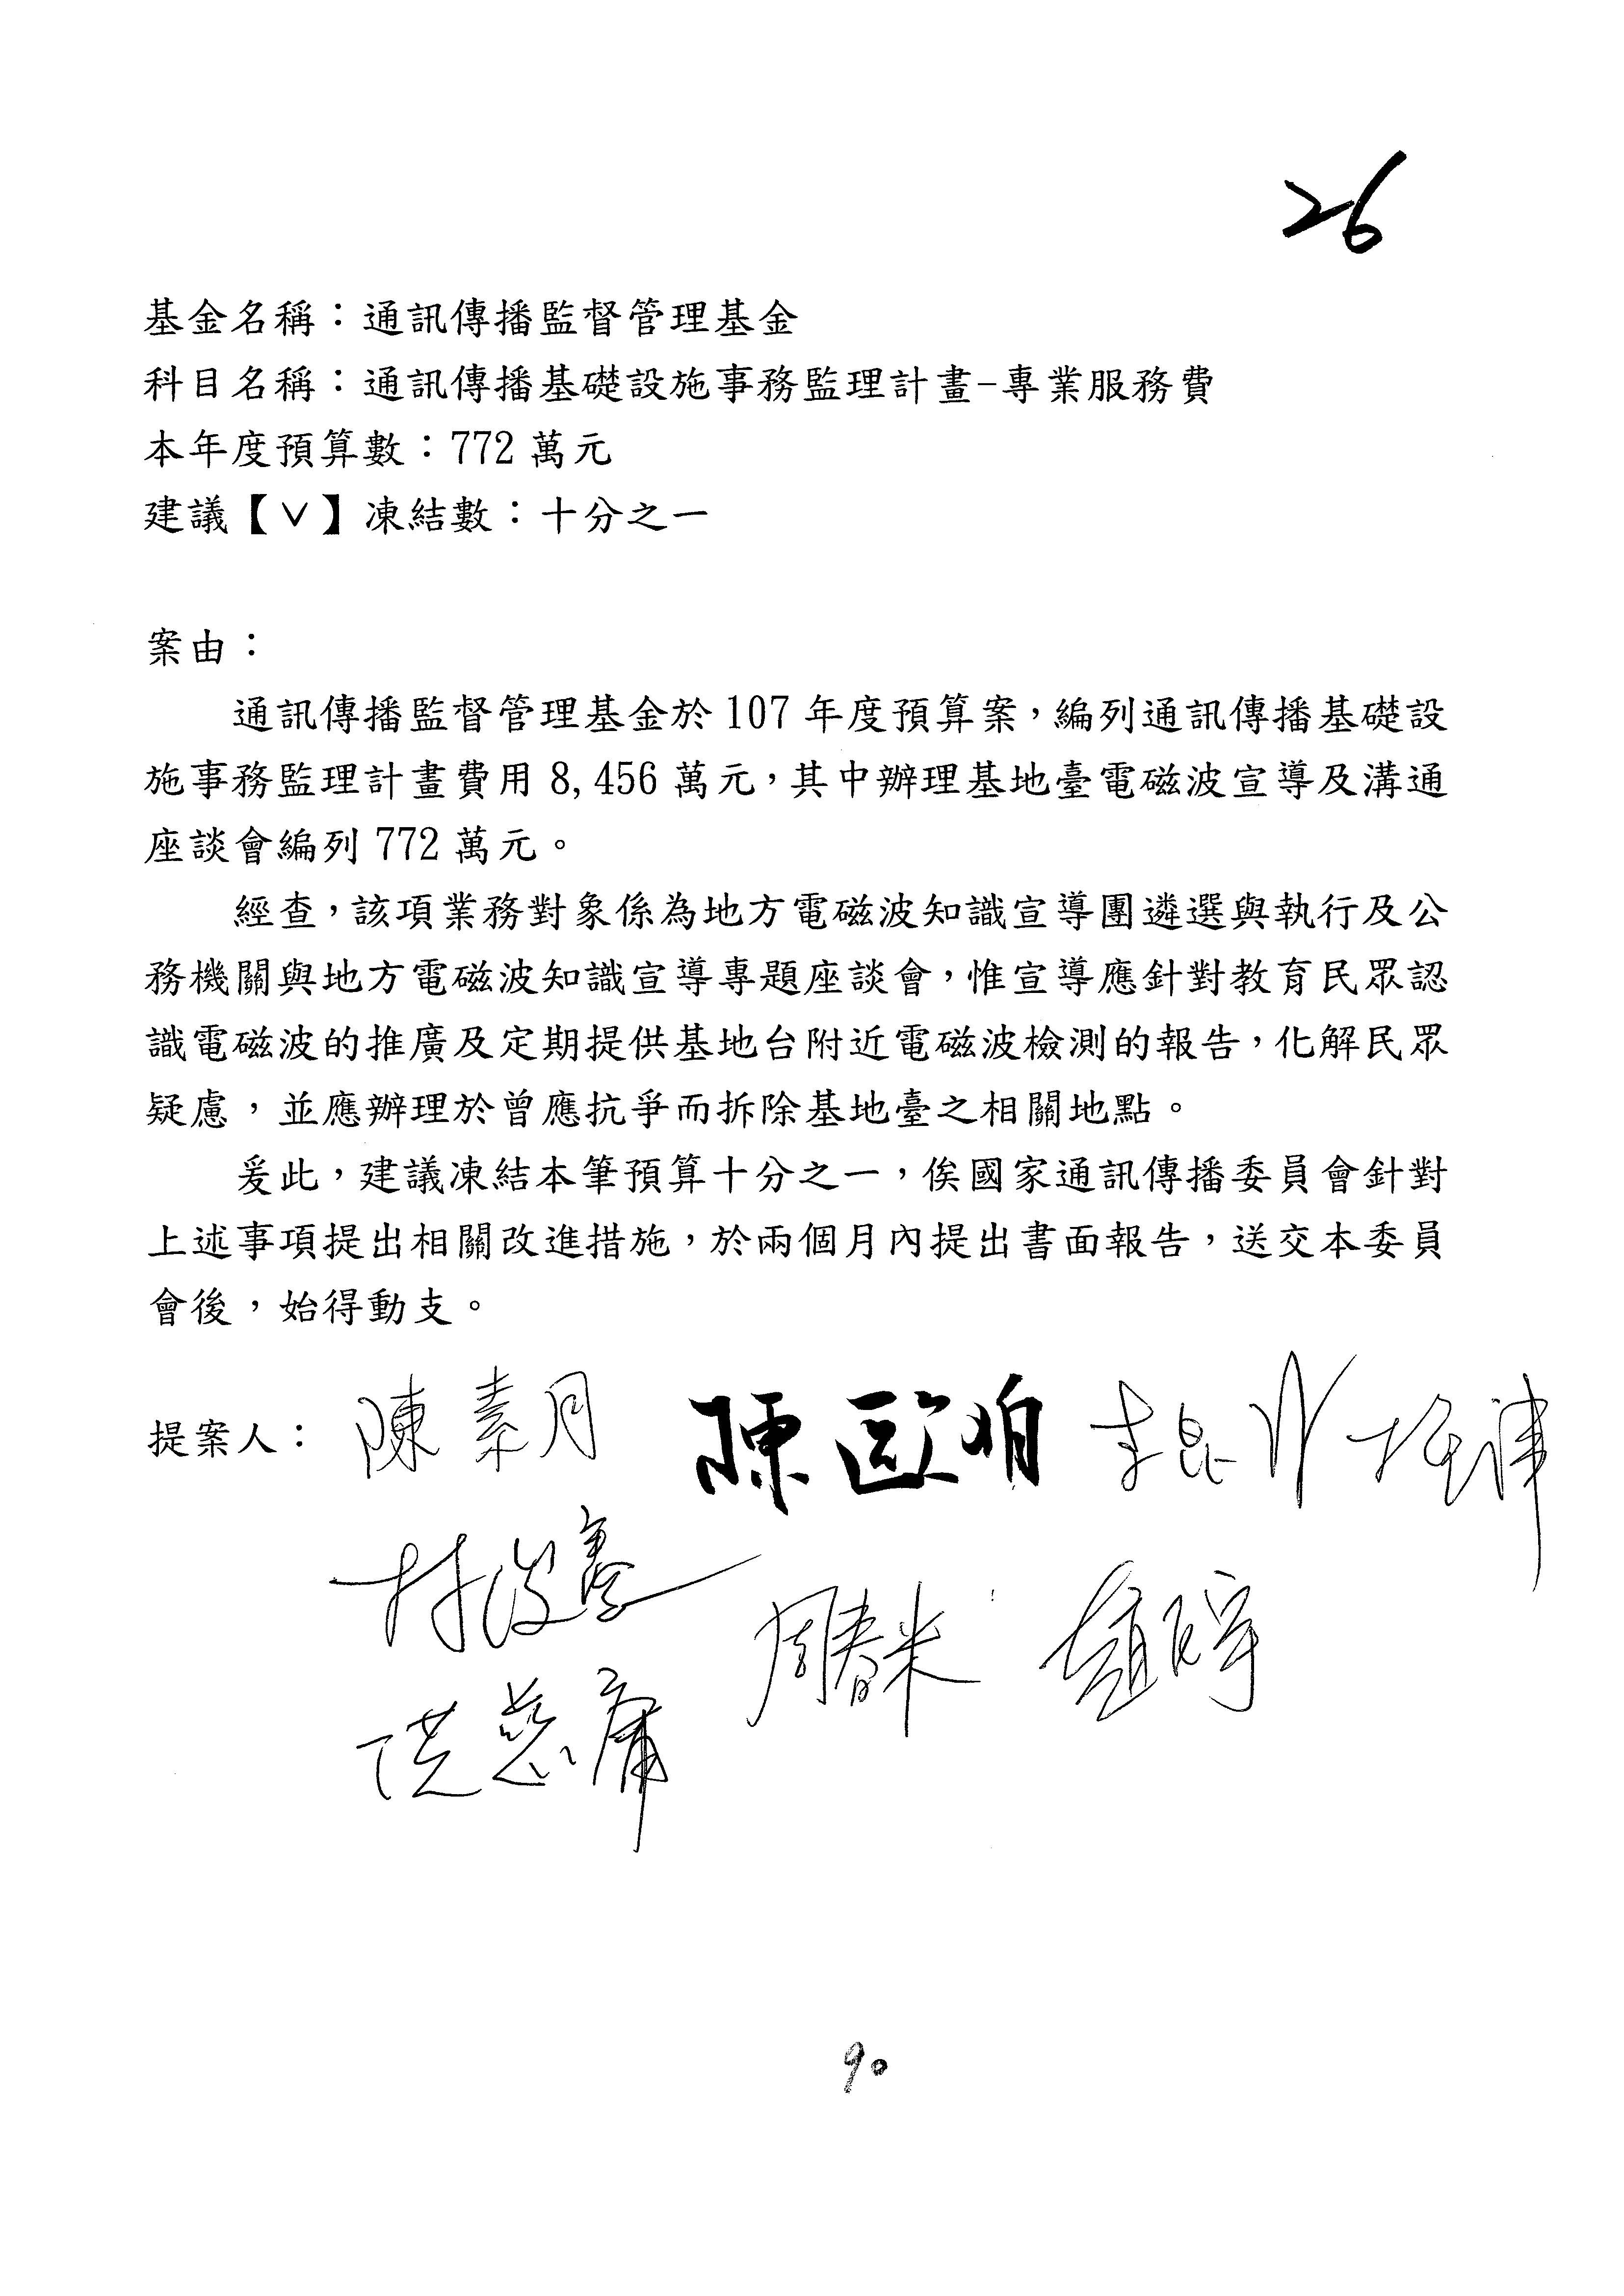 26
基金名稱：通訊傳播監督管理基金
科目名稱：通訊傳播基礎設施事務監理計畫-專業服務費
本年度預算數：772 萬元
建議【∨】凍結數：十分之一
案由：
通訊傳播監督管理基金於 107 年度預算案，編列通訊傳播基礎設
施事務監理計畫費用 8,456 萬元，其中辦理基地臺電磁波宣導及溝通
座談會編列 772 萬元。
經查，該項業務對象係為地方電磁波知識宣導團遴選與執行及公
務機關與地方電磁波知識宣導專題座談會，惟宣導應針對教育民眾認
識電磁波的推廣及定期提供基地台附近電磁波檢測的報告，化解民眾
疑慮，並應辦理於曾應抗爭而拆除基地臺之相關地點。
爰此，建議凍結本筆預算十分之一，俟國家通訊傳播委員會針對
上述事項提出相關改進措施，於兩個月內提出書面報告，送交本委員
會後，始得動支。
提案人： 陳素月 陳歐珀 李昆澤
林俊憲 周春米
洪慈庸
90